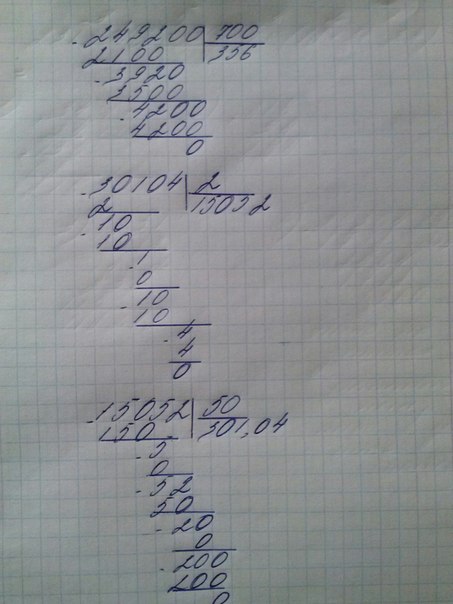 - 249200 | 700
2100 | 356
- 3920
3500
- 4200
4200
0
- 30104 | 2
2 | 15052
- 10
10
- 1
0
- 10
10
- 4
4
0
- 15052 | 50
150 | 301,04
- 5
0
- 52
50
- 20
0
- 200
200
0